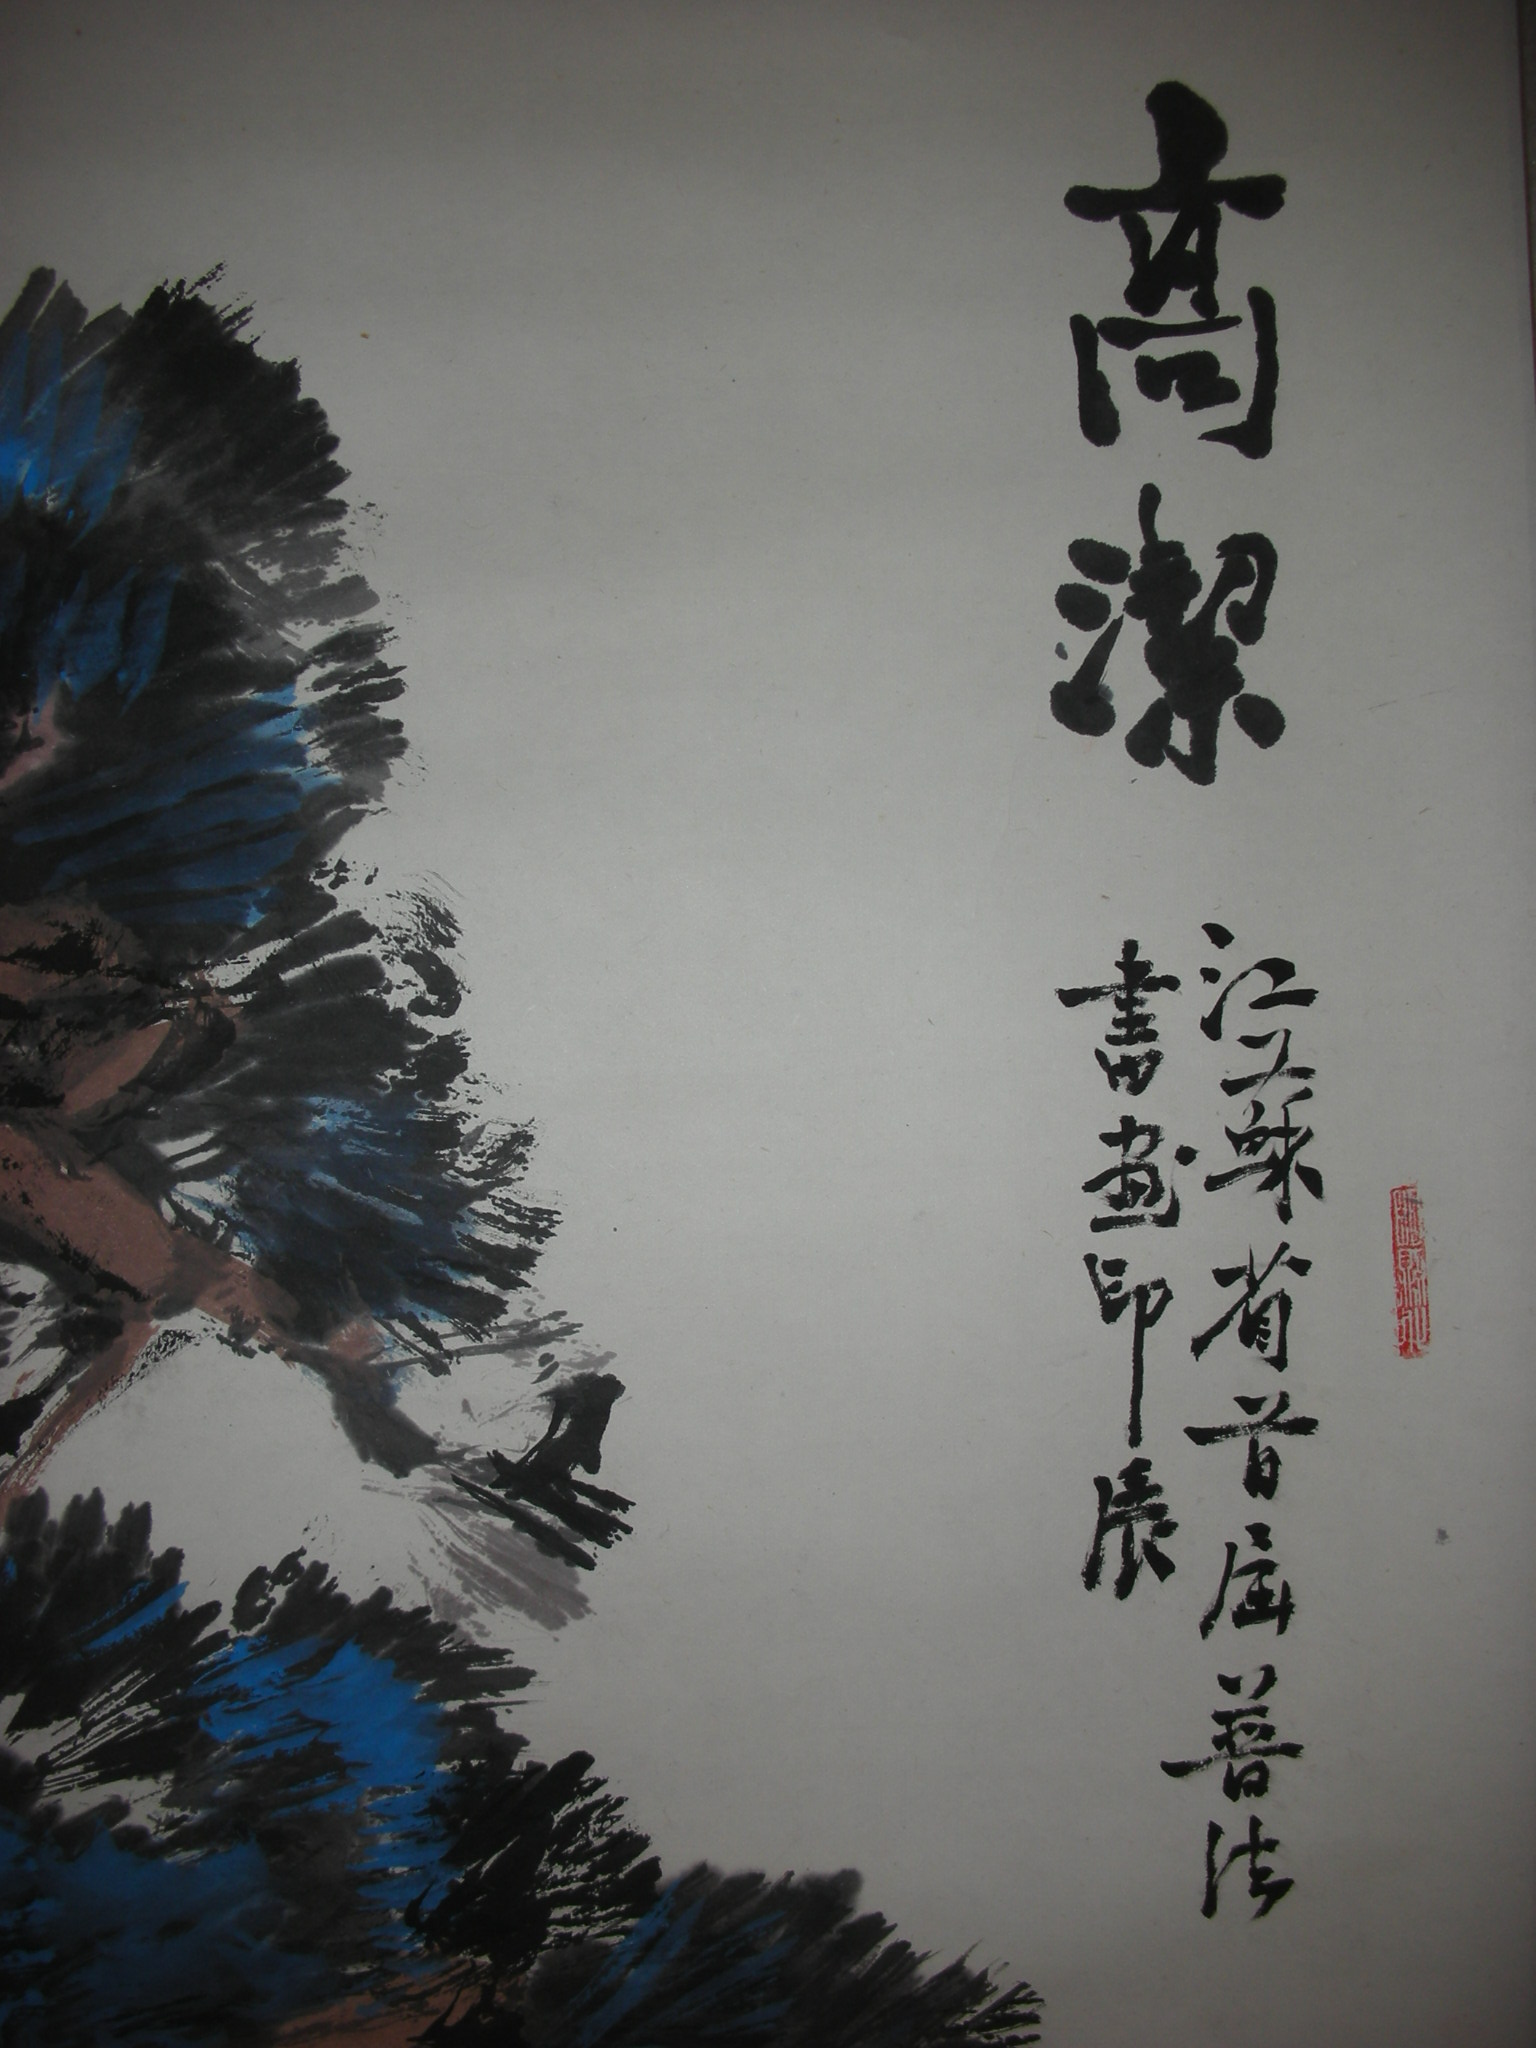 高潔
江蘇省首屆普法
書画印展